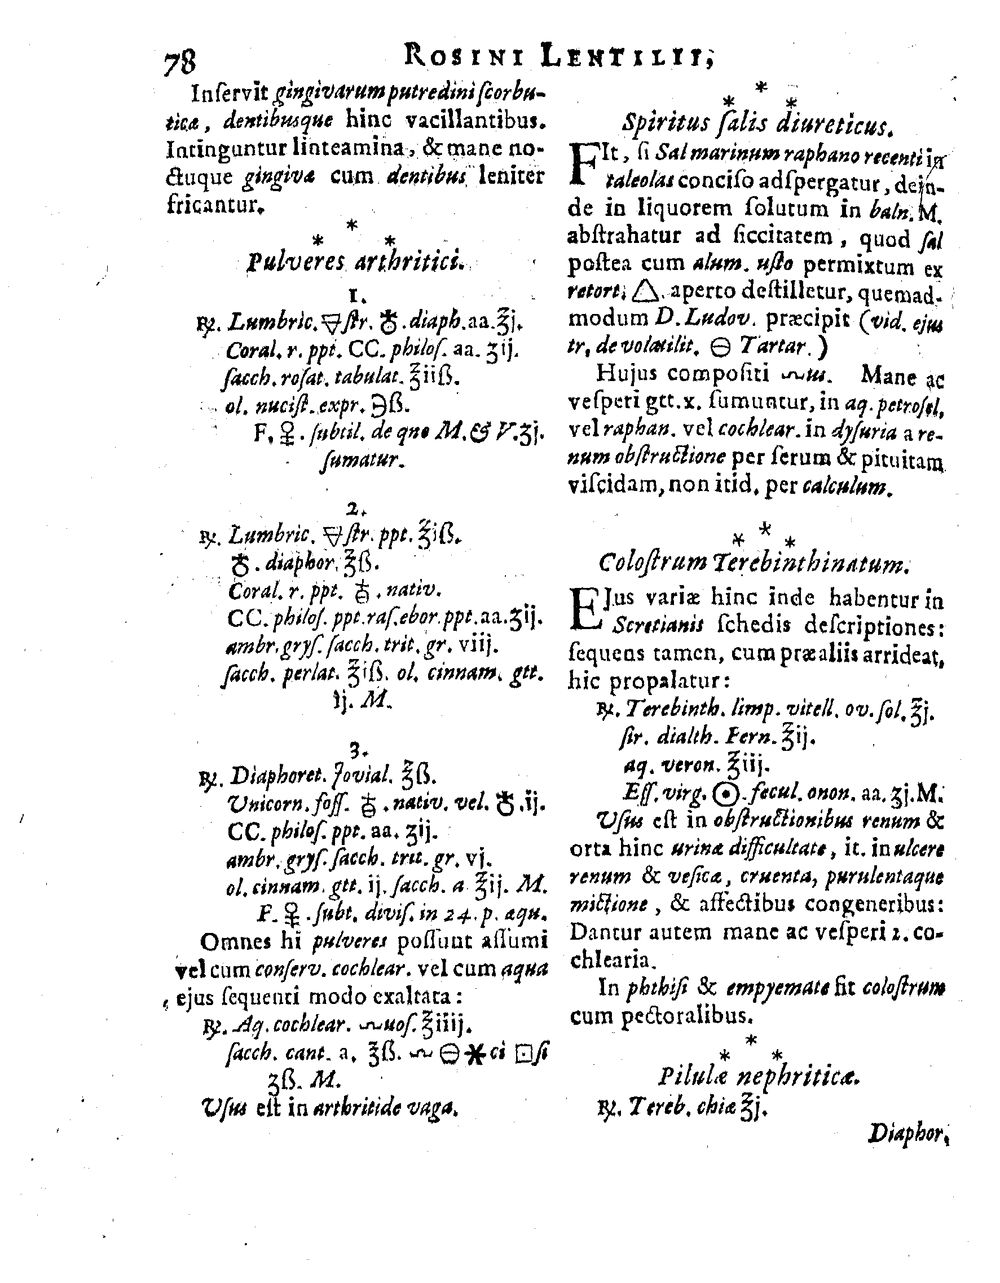 78 ROSINI LENTILII,
Inſervit gingivarum putredini ſcorbu-
ticæ, dentibusque hinc vacillantibus.
Intinguntur linteamina, & mane no-
ctuque gingivæ cum dentibus leniter
fricantur.
* * *
Pulveres arthritici.
1.
℞. Lumbric. 🜃 ſtr. ♁ . diaph. aa. ℥j.
Coral. r. ppt. CC. philoſ. aa. ʒij.
ſacch. roſat. tabulat. ℥iiß.
ol. nuciſt. expr. ℈ß.
F. ♀ . ſubtil. de quo M. & V. ʒj.
ſumatur.
2.
℞. Lumbric. 🜃 ſtr. ppt. ℥iß.
♁ . diaphor. ℥ß.
Coral. r. ppt. . nativ.
CC. philoſ. ppt. raſ. ebor. ppt. aa. ʒij.
ambr. gryſ. ſacch. trit. gr. viij.
ſacch. perlat. ℥iß. ol. cinnam. gtt.
ij. M.
3.
℞. Diaphoret. Jovial. ℥ß.
Unicorn. foſſ. . nativ. vel. ♁ . ij.
CC. philoſ. ppt. aa. ʒij.
ambr. gryſ. ſacch. trit. gr. vj.
ol. cinnam. gtt. ij. ſacch. a ℥ij. M.
F. ♀ . ſubt. diviſ. in 24. p. æqu.
Omnes hi pulveres poſſunt aſſumi
vel cum conſerv. cochlear. vel cum aqua
ejus ſequenti modo exaltata:
℞. Aq. cochlear. 〰uoſ. ℥iiij.
ſacch. cant. a. ℥ß. 〰 🜔 ✱ ci ⊡ ſi
ʒß. M.
Uſus eſt in arthritide vaga.
* * *
Spiritus ſalis diureticus.
FIt, ſi Sal marinum raphano recenti in
taleolas conciſo adſpergatur, dein-
de in liquorem ſolutum in baln. M.
abſtrahatur ad ſiccitatem, quod ſal
poſtea cum alum. uſto permixtum ex
retort. △. aperto deſtilletur, quemad-
modum D. Ludov. præcipit (vid. ejus
tr. de volatilit. 🜔 Tartar.)
Hujus compoſiti 〰us. Mane ac
veſperi gtt. x. ſumuntur, in aq. petroſel.
vel raphan. vel cochlear. in dyſuria a re-
num obſtructione per ſerum & pituitam
viſcidam, non itid. per calculum.
* * *
Coloſtrum Terebinthinatum.
EJus variæ hinc inde habentur in
Scretianis ſchedis deſcriptiones:
ſequens tamen, cum præ aliis arrideat,
hic propalatur:
℞. Terebinth. limp. vitell. ov. ſol. ℥j.
ſir. dialth. Fern. ℥ij.
aq. veron. ℥iij.
Eſſ. virg. ☉. fecul. onon. aa. ʒj. M.
Uſus eſt in obſtructionibus renum &
orta hinc urinæ difficultate, it. in ulcere
renum & veſicæ, cruenta, purulentaque
mictione, & affectibus congeneribus:
Dantur autem mane ac veſperi 2. co-
chlearia.
In phthiſi & empyemate fit coloſtrum
cum pectoralibus.
* * *
Pilulæ nephriticæ.
℞. Tereb. chiæ ℥j.
Diaphor.